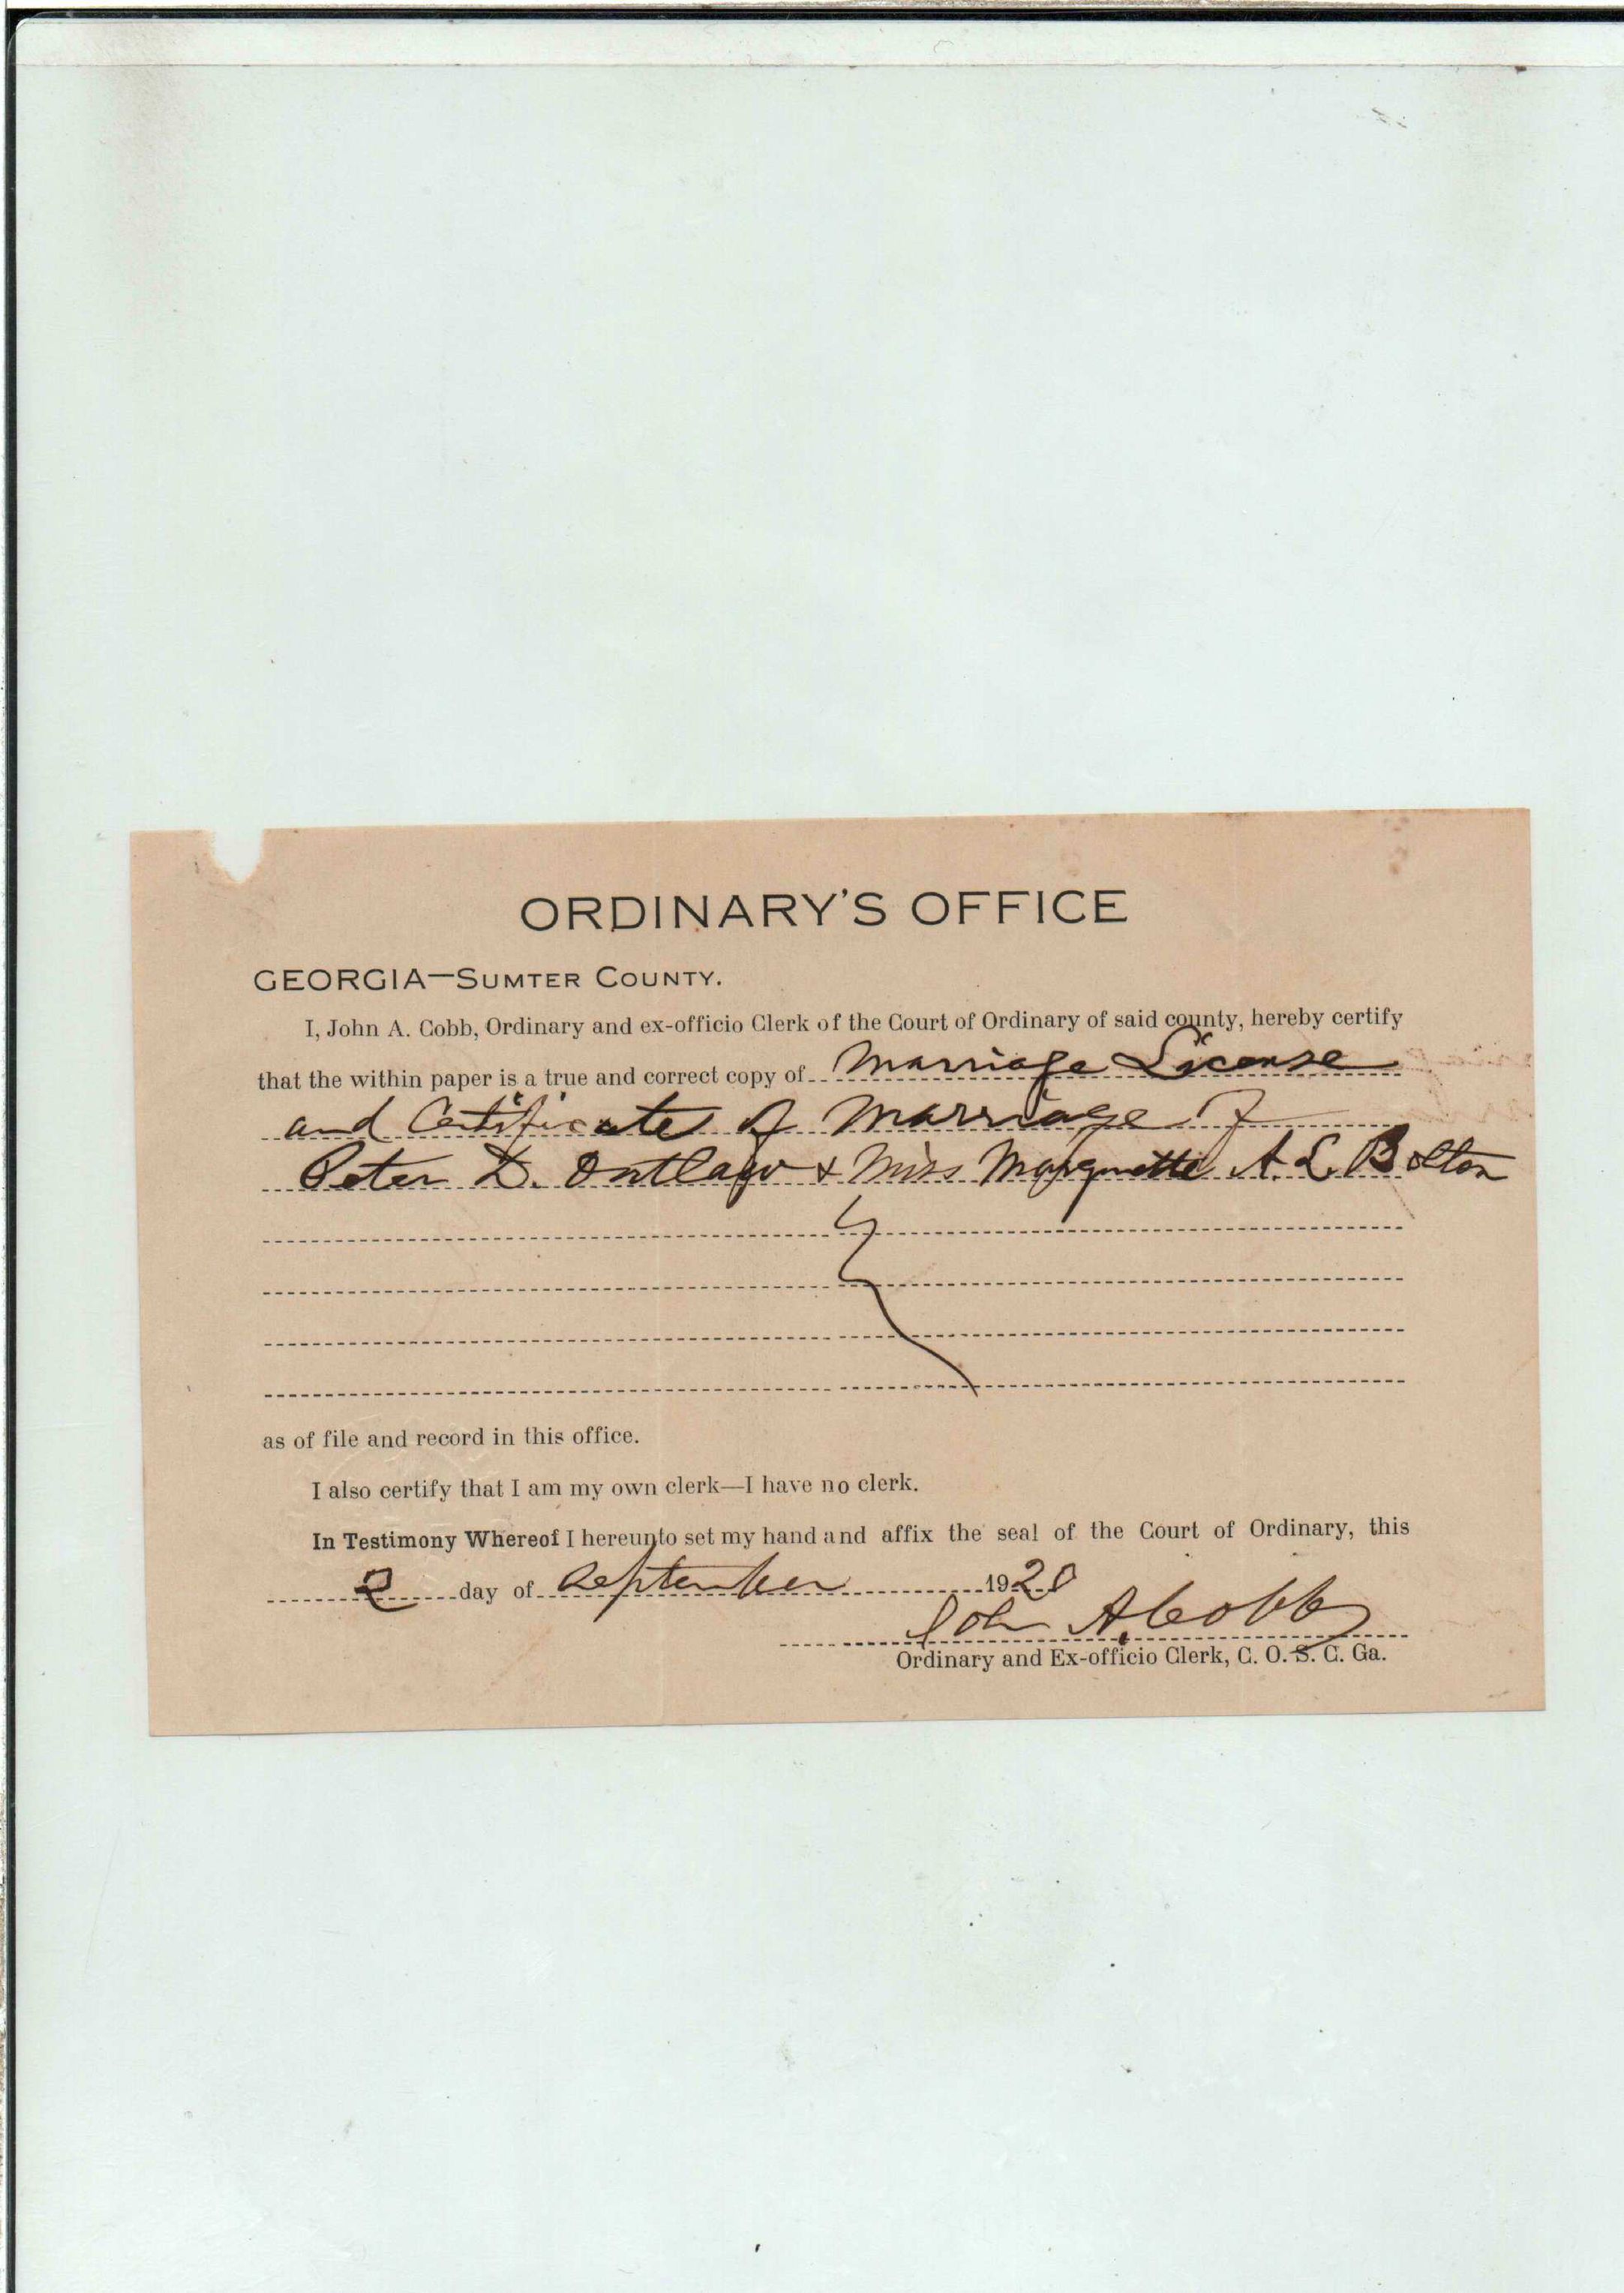 ORDINARY'S OFFICE
GEORGIA—SUMTER COUNTY.
I, John A. Cobb, Ordinary and ex-officio Clerk of the Court of Ordinary of said county, hereby certify
that the within paper is a true and correct copy of Marriage License
and Certificate of Marriage of
Peter D. Outlaw & Miss Marquette A. L. Bolton
as of file and record in this office.
I also certify that I am my own clerk—I have no clerk.
In Testimony Whereof I hereunto set my hand and affix the seal of the Court of Ordinary, this
2 day of September 1920
John A. Cobb
Ordinary and Ex-officio Clerk, C. O. S. C. Ga.